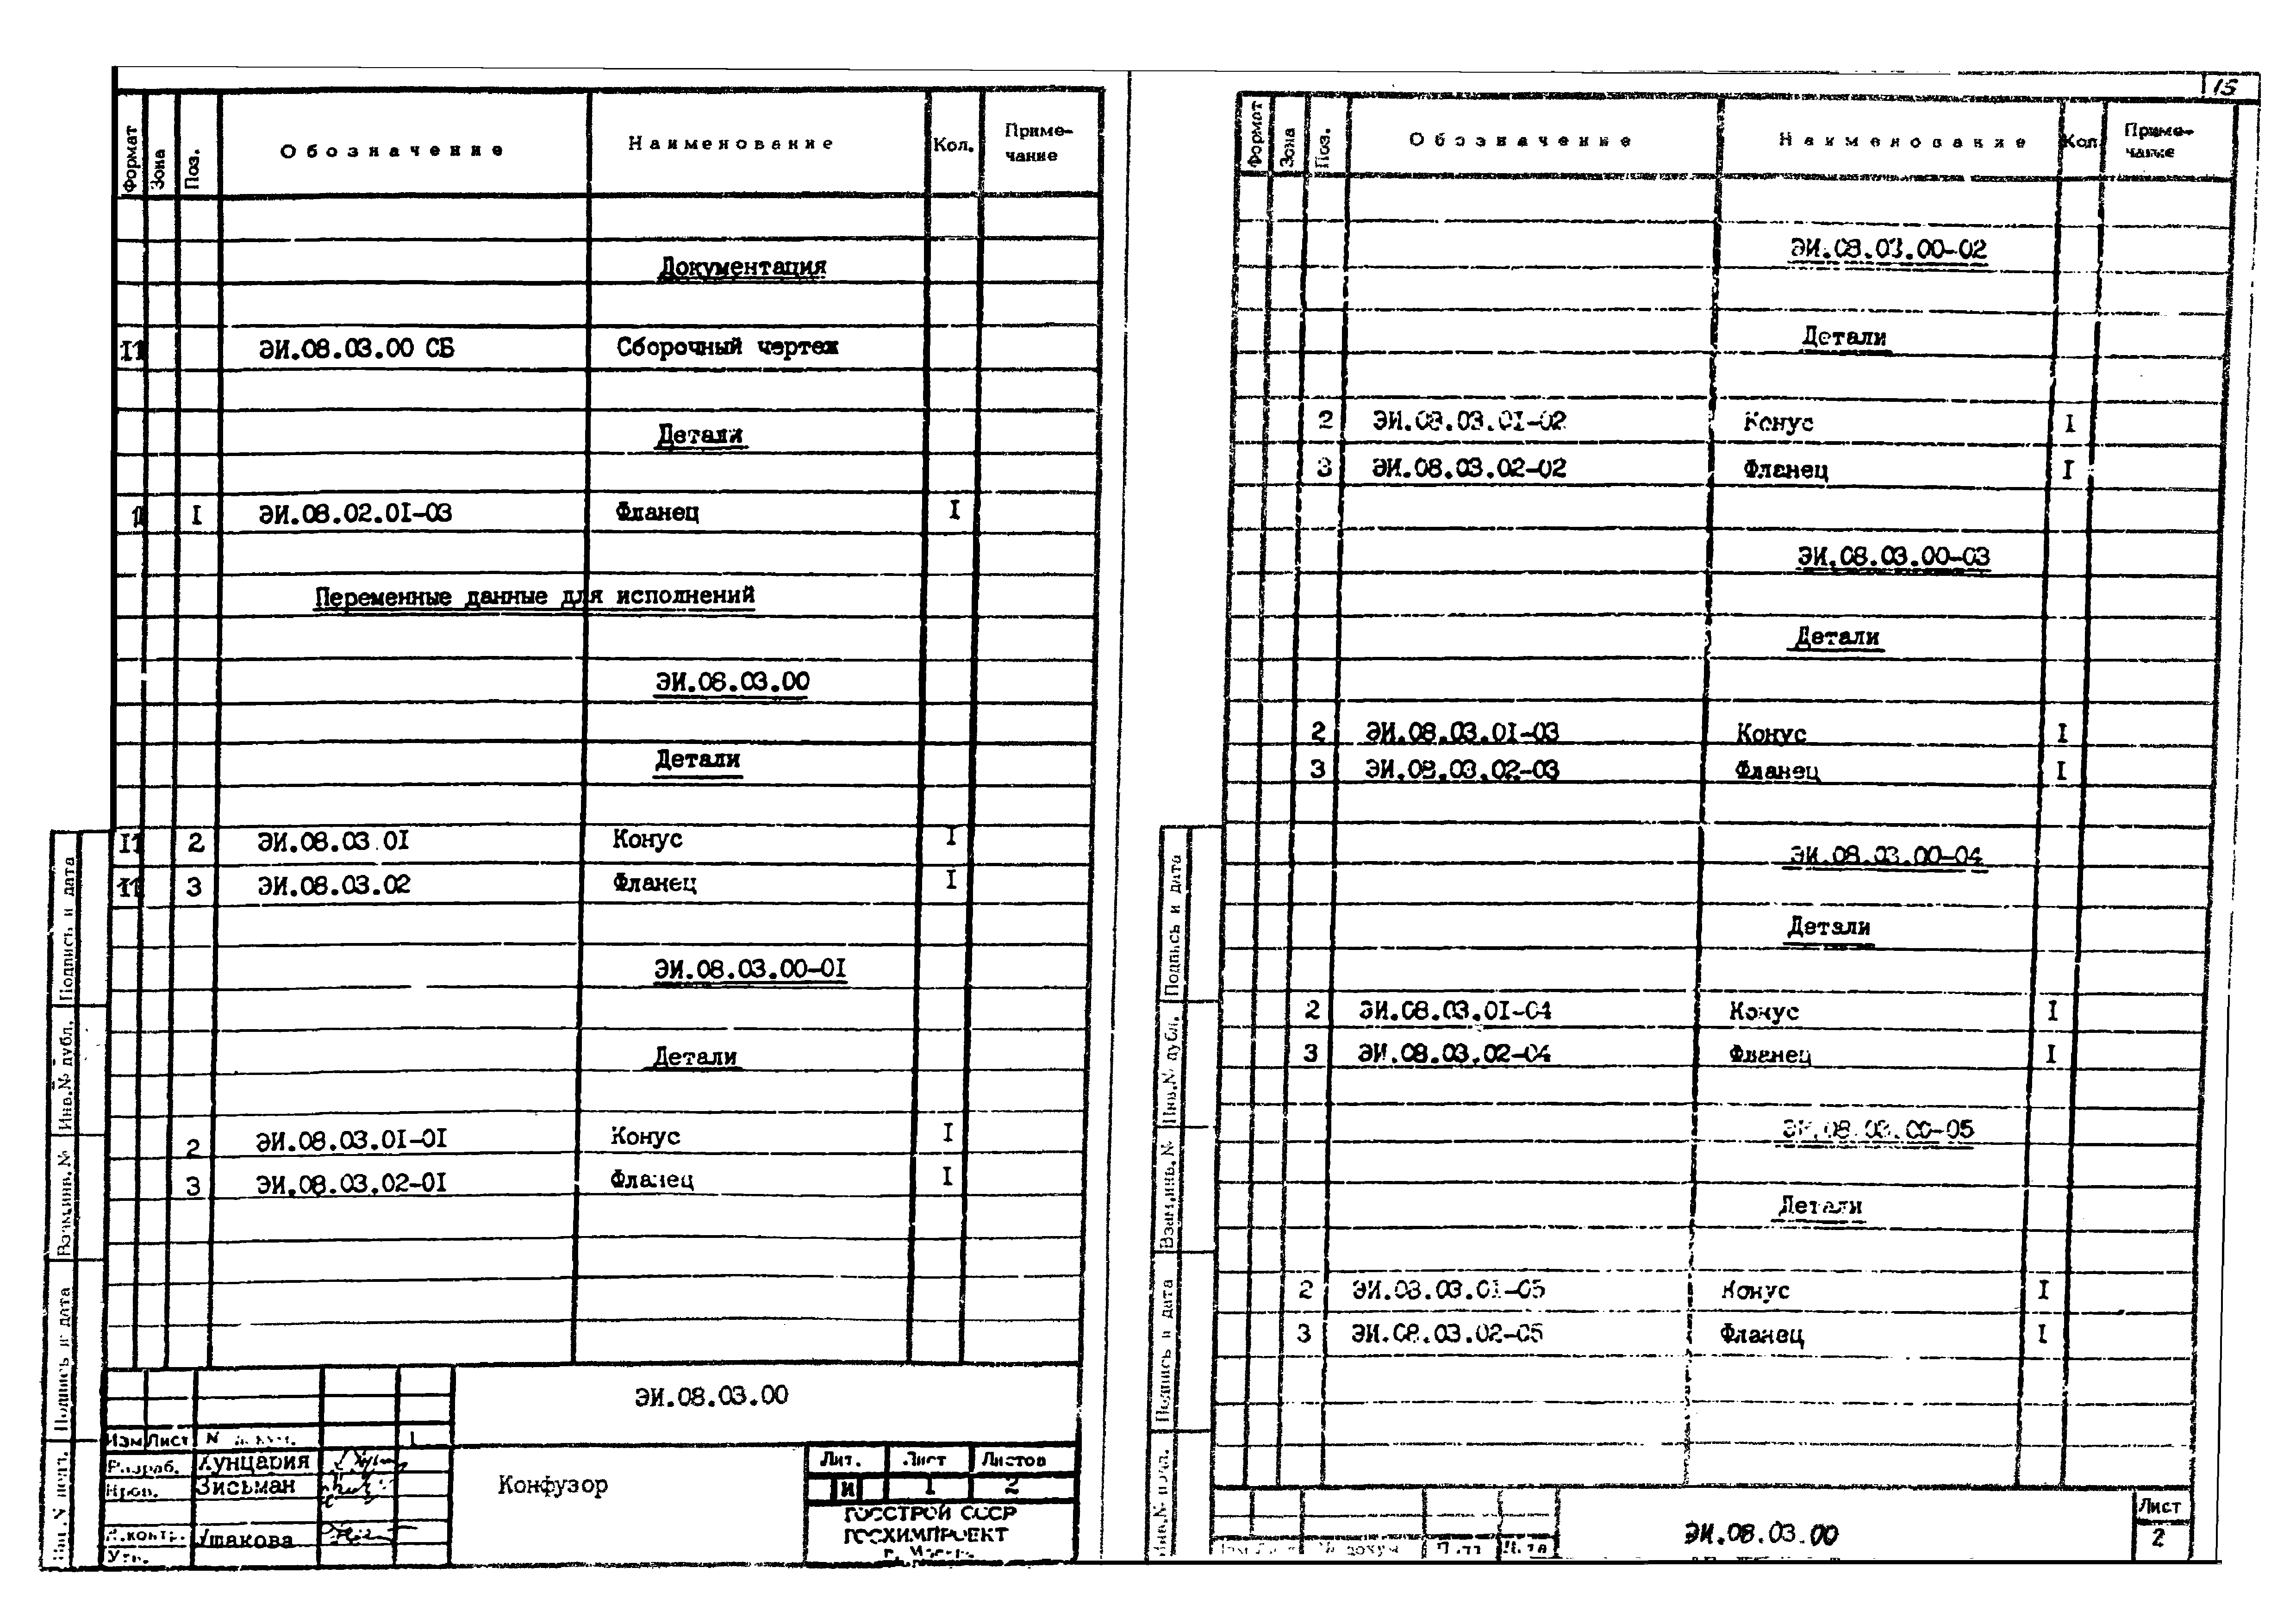 15
Формат Зона Поз. Обозначение Наименование Кол. Приме-
чание
Документация
11 ЭИ.08.03.00 СБ Сборочный чертеж
Детали
1 I ЭИ.08.02.01-03 Фланец I
Переменные данные для исполнений
ЭИ.08.03.00
Детали
11 2 ЭИ.08.03.01 Конус I
11 3 ЭИ.08.03.02 Фланец I
ЭИ.08.03.00-01
Детали
2 ЭИ.08.03.01-01 Конус I
3 ЭИ.08.03.02-01 Фланец I
Подпись и дата
Инв.№ дубл.
Взам.инв.№
Подпись и дата
Инв.№ подл.
ЭИ.08.03.00
Изм Лист
Разраб. Хунцария
Пров. Зисьман
Н.контр. Ушакова
Утв.
Конфузор
Лит. Лист Листов
И 1 2
ГОССТРОЙ СССР
ГОСХИМПРОЕКТ
г. Москва
Формат Зона Поз. Обозначение Наименование Кол. Приме-
чание
ЭИ.08.03.00-02
Детали
2 ЭИ.08.03.01-02 Конус I
3 ЭИ.08.03.02-02 Фланец I
ЭИ.08.03.00-03
Детали
2 ЭИ.08.03.01-03 Конус I
3 ЭИ.08.03.02-03 Фланец I
ЭИ.08.03.00-04
Детали
2 ЭИ.08.03.01-04 Конус I
3 ЭИ.08.03.02-04 Фланец I
ЭИ.08.03.00-05
Детали
2 ЭИ.08.03.01-05 Конус I
3 ЭИ.08.03.02-05 Фланец I
Подпись и дата
Инв.№ дубл.
Взам.инв.№
Подпись и дата
Инв.№ подл.
ЭИ.08.03.00
Лист
2